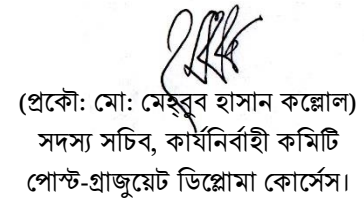 (প্রকৌ: মো: মেহ্বুব হাসান কল্লোল)
সদস্য সচিব, কার্যনির্বাহী কমিটি
পোস্ট-গ্রাজুয়েট ডিপ্লোমা কোর্সেস।